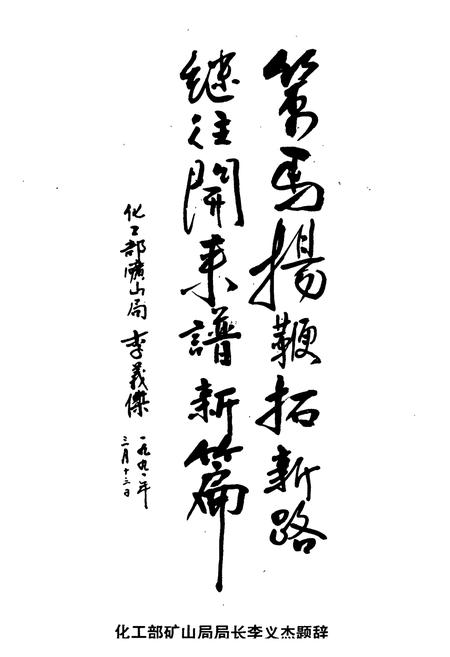 策馬揚鞭拓新路
继往開来譜新篇
化工部礦山局 李義傑
一九九一年
三月十三日
化工部矿山局局长李义杰题辞